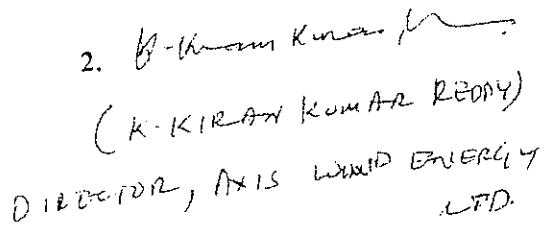 2. K. Kiran Kumar
(K. KIRAN KUMAR REDDY)
DIRECTOR, AXIS WIND ENERGY
LTD.